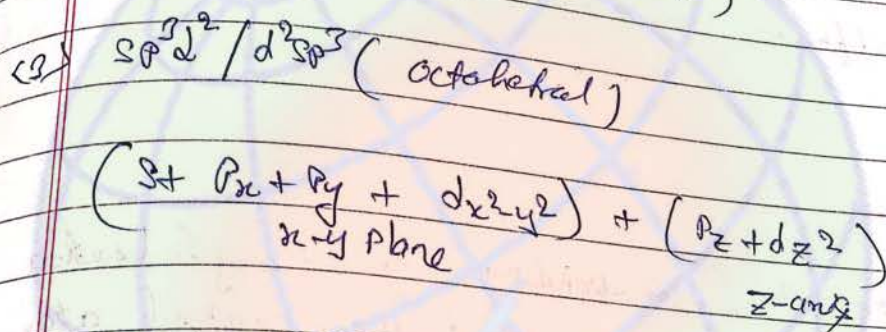 <3> sp³d² / d²sp³ ( octohetral )
( S + Px + Py + dx²-y² ) + ( Pz + dz² )
x-y Plane
Z-axis